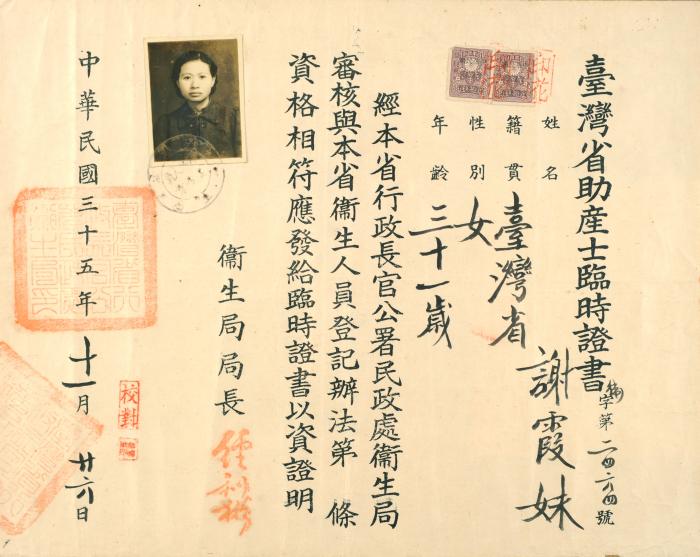 臺灣省助產士臨時證書
字第二四六四號
姓名 謝霞妹
籍貫 臺灣省
性別 女
年齡 三十一歲
經本省行政長官公署民政處衞生局
審核與本省衞生人員登記辦法第 條
資格相符應發給臨時證書以資證明
衞生局局長 經利彬
中華民國三十五年十一月廿六日
校對